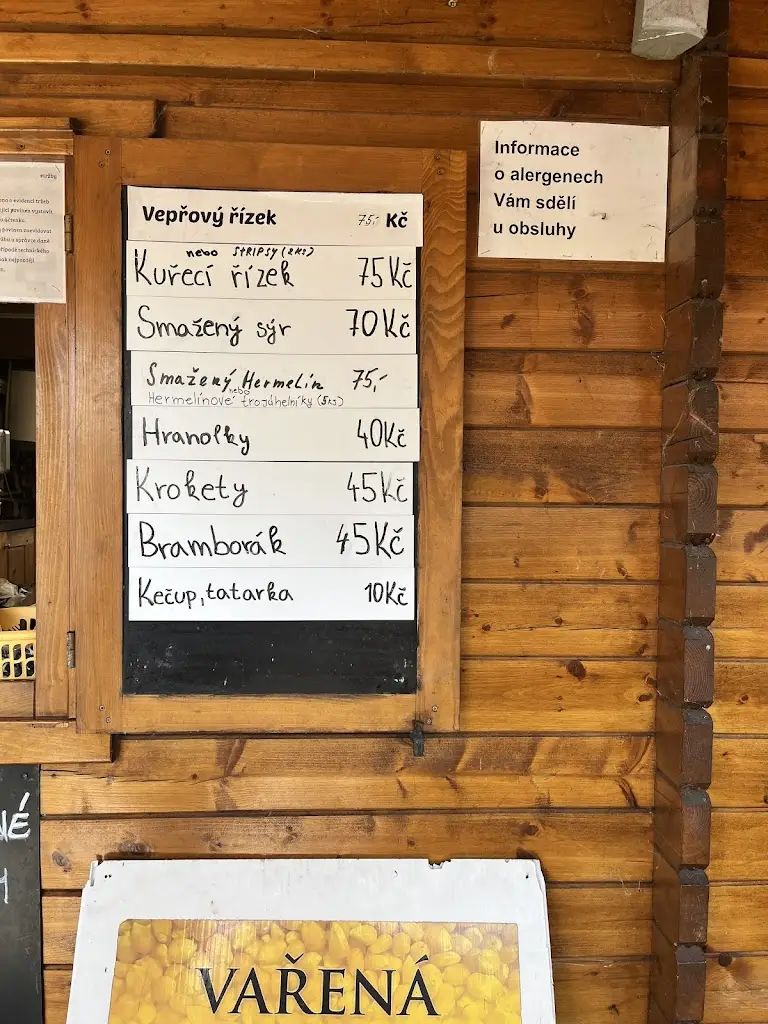 Informace
o alergenech
Vám sdělí
u obsluhy
Vepřový řízek 75,- Kč
nebo STRIPSY (2KS)
Kuřecí řízek 75Kč
Smažený sýr 70Kč
Smažený Hermelín 75,-
nebo
Hermelínové trojúhelníky (5ks)
Hranolky 40Kč
Krokety 45Kč
Bramborák 45Kč
Kečup, tatarka 10Kč
NÉ
VAŘENÁ